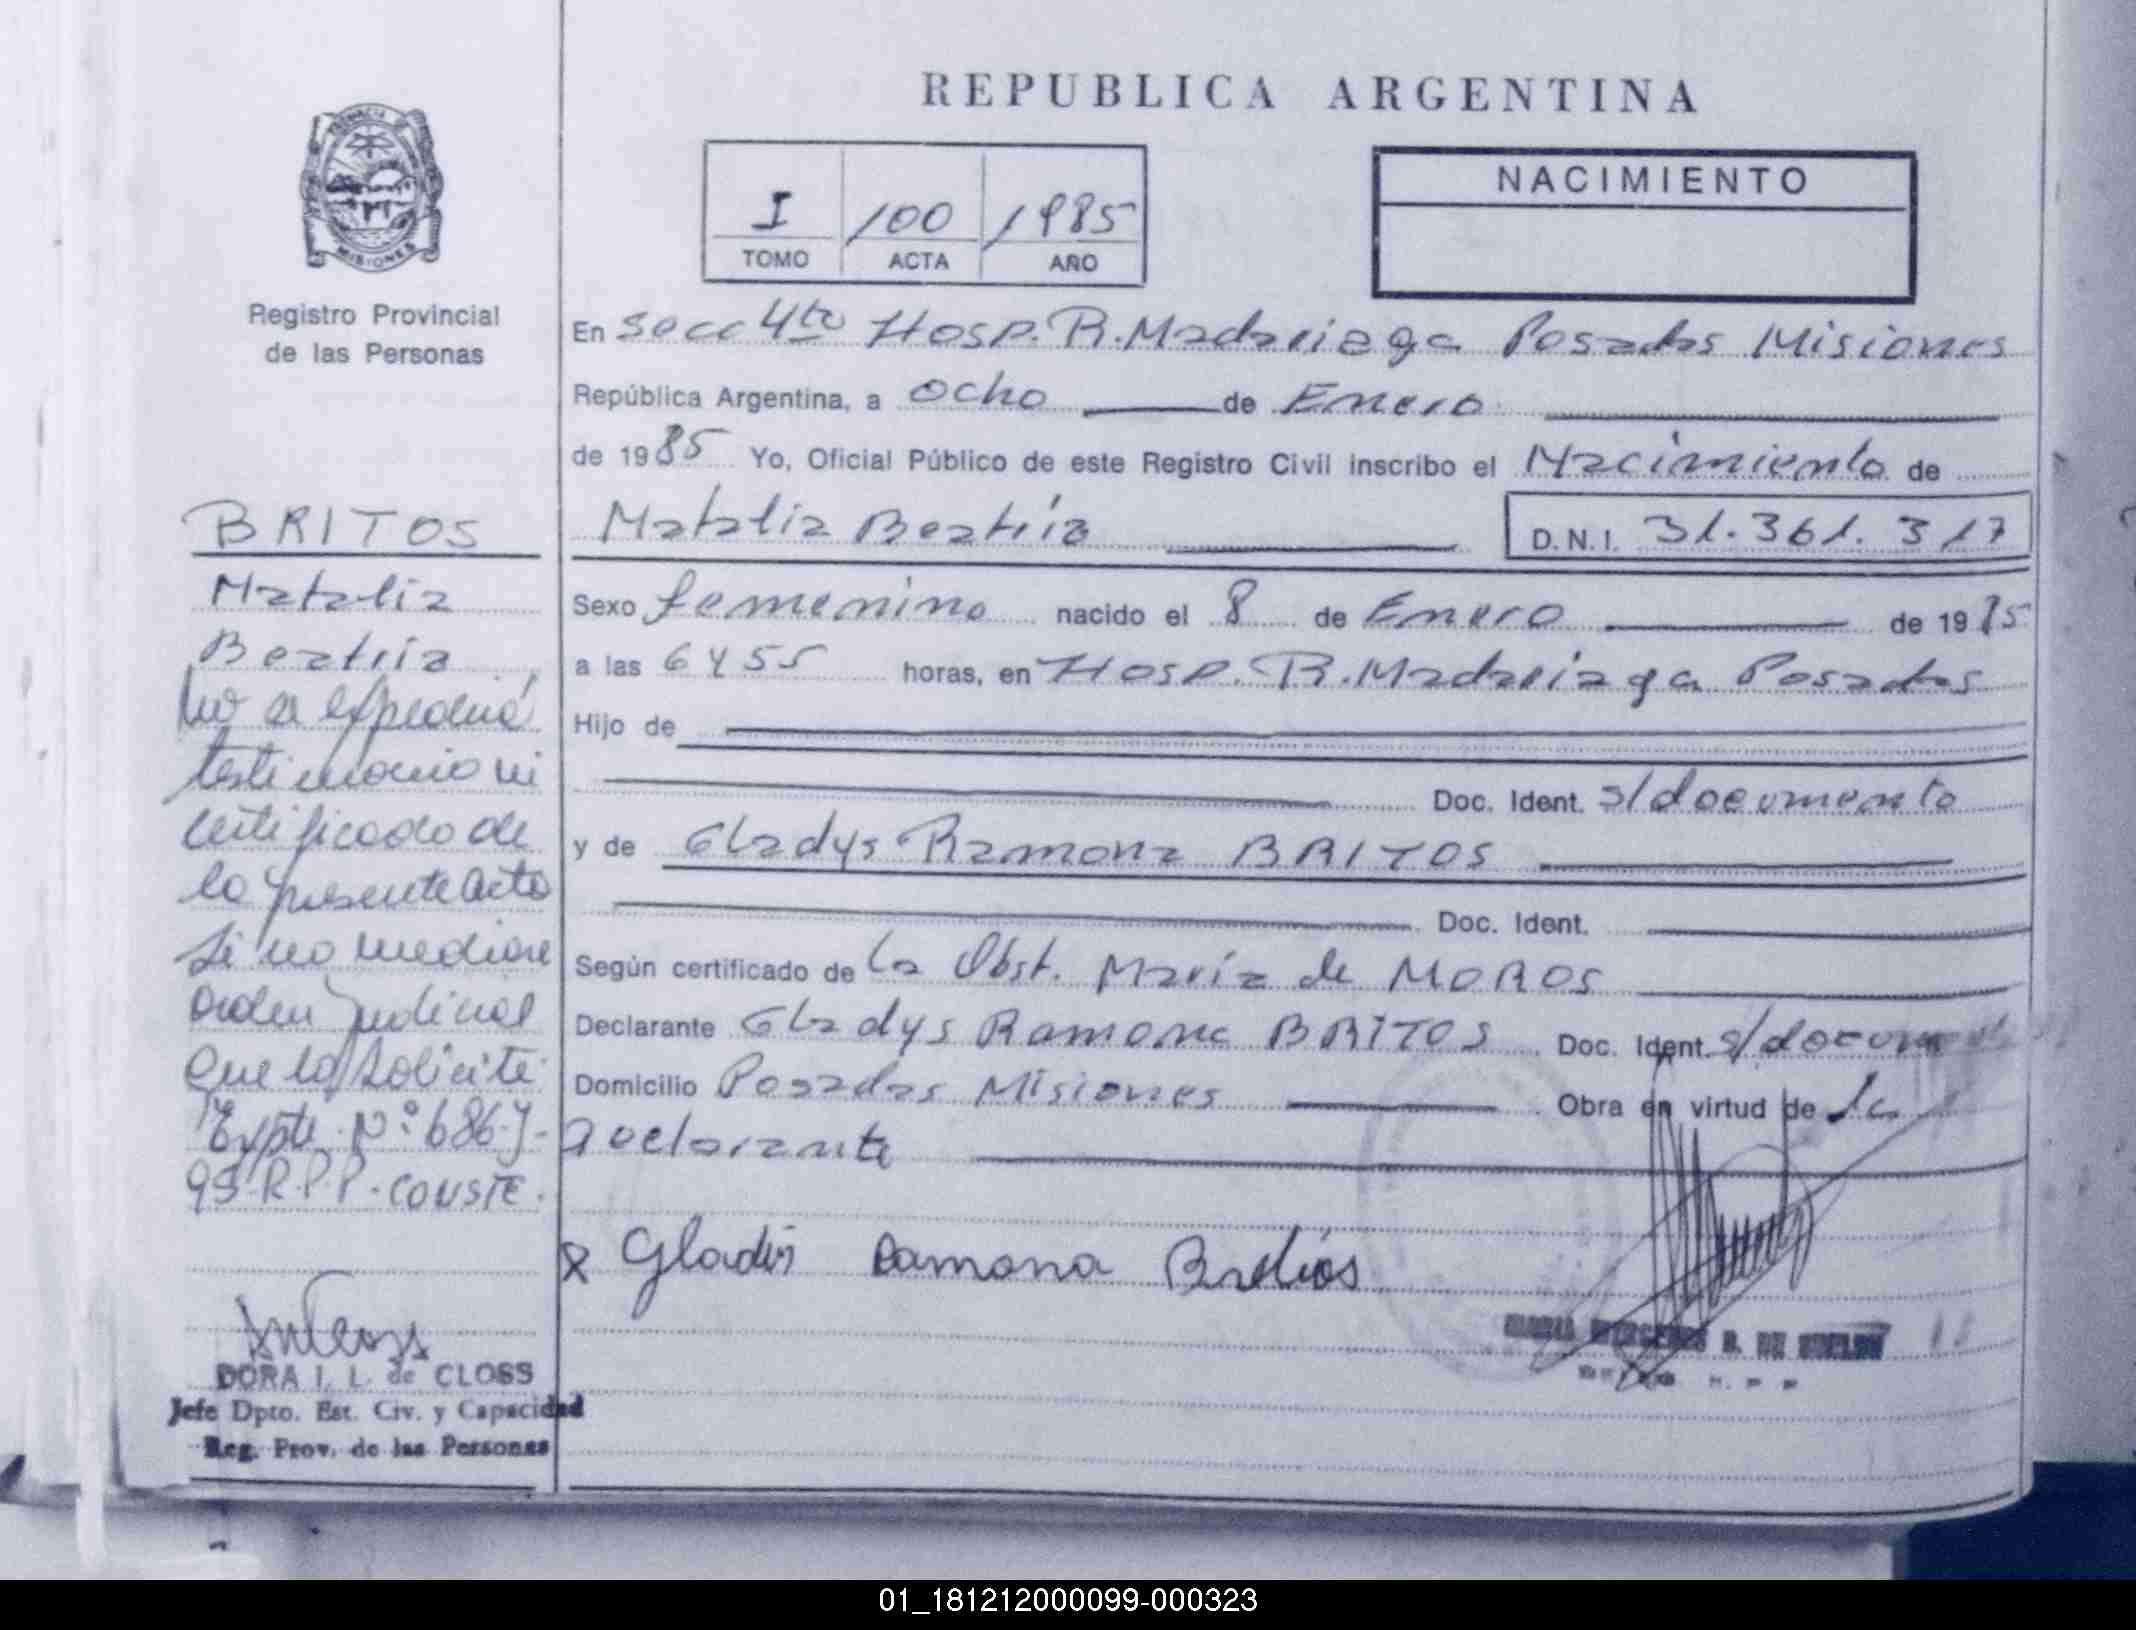 PROVINCIA DE
MISIONES
Registro Provincial
de las Personas
BRITOS
Natalia
Beatriz
No se expedirá
testimonio ni
certificado de
la presente acta
Si no mediare
orden judicial
que lo solicite
Expte. Nº 686-J-
95-R.P.P. CONSTE.
DORA I. L. de CLOSS
Jefe Dpto. Est. Civ. y Capacidad
Reg. Prov. de las Personas
REPUBLICA ARGENTINA
I /100 /1985
TOMO ACTA AÑO
NACIMIENTO
En Secc 4ta Hosp. R. Madariaga Posadas Misiones
República Argentina, a Ocho de Enero
de 1985 Yo, Oficial Público de este Registro Civil inscribo el Nacimiento de
Natalia Beatriz D.N.I. 31.361.317
Sexo femenino nacido el 8 de Enero de 1985
a las 6 y 55 horas, en Hosp. R. Madariaga Posadas
Hijo de
Doc. Ident. s/documento
y de Gladys Ramona BRITOS
Doc. Ident.
Según certificado de la Obst. María de MOROS
Declarante Gladys Ramona BRITOS Doc. Ident. s/document
Domicilio Posadas Misiones Obra en virtud de la
declarante
x Gladis Ramona Britos
MARIA MERCEDES
01_181212000099-000323